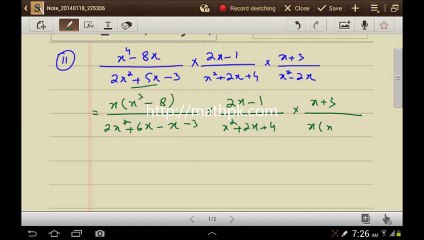 Note_20140118_226306
Record sketching
11 (x⁴ - 8x)/(2x² + 5x - 3) × (2x - 1)/(x² + 2x + 4) × (x + 3)/(x² - 2x)
= x(x³ - 8)/(2x² + 6x - x - 3) × (2x - 1)/(x² + 2x + 4) × (x + 3)/(x(x
http://mathpk.com
1/2
7:26 AM